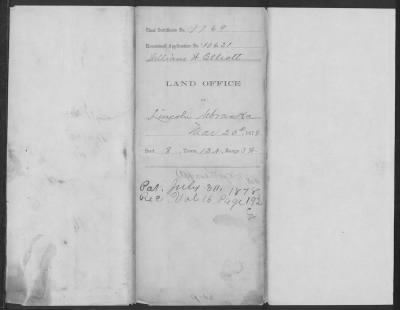 Final Certificate No. 7769
Homestead Application No. 13621
William H Elliott
LAND OFFICE
at
Lincoln Nebraska
Mar 20th, 1878
Sect. 8, Town 12 N, Range 3 W
Pat. July 30, 1878
Rec. Vol 16 Page 192